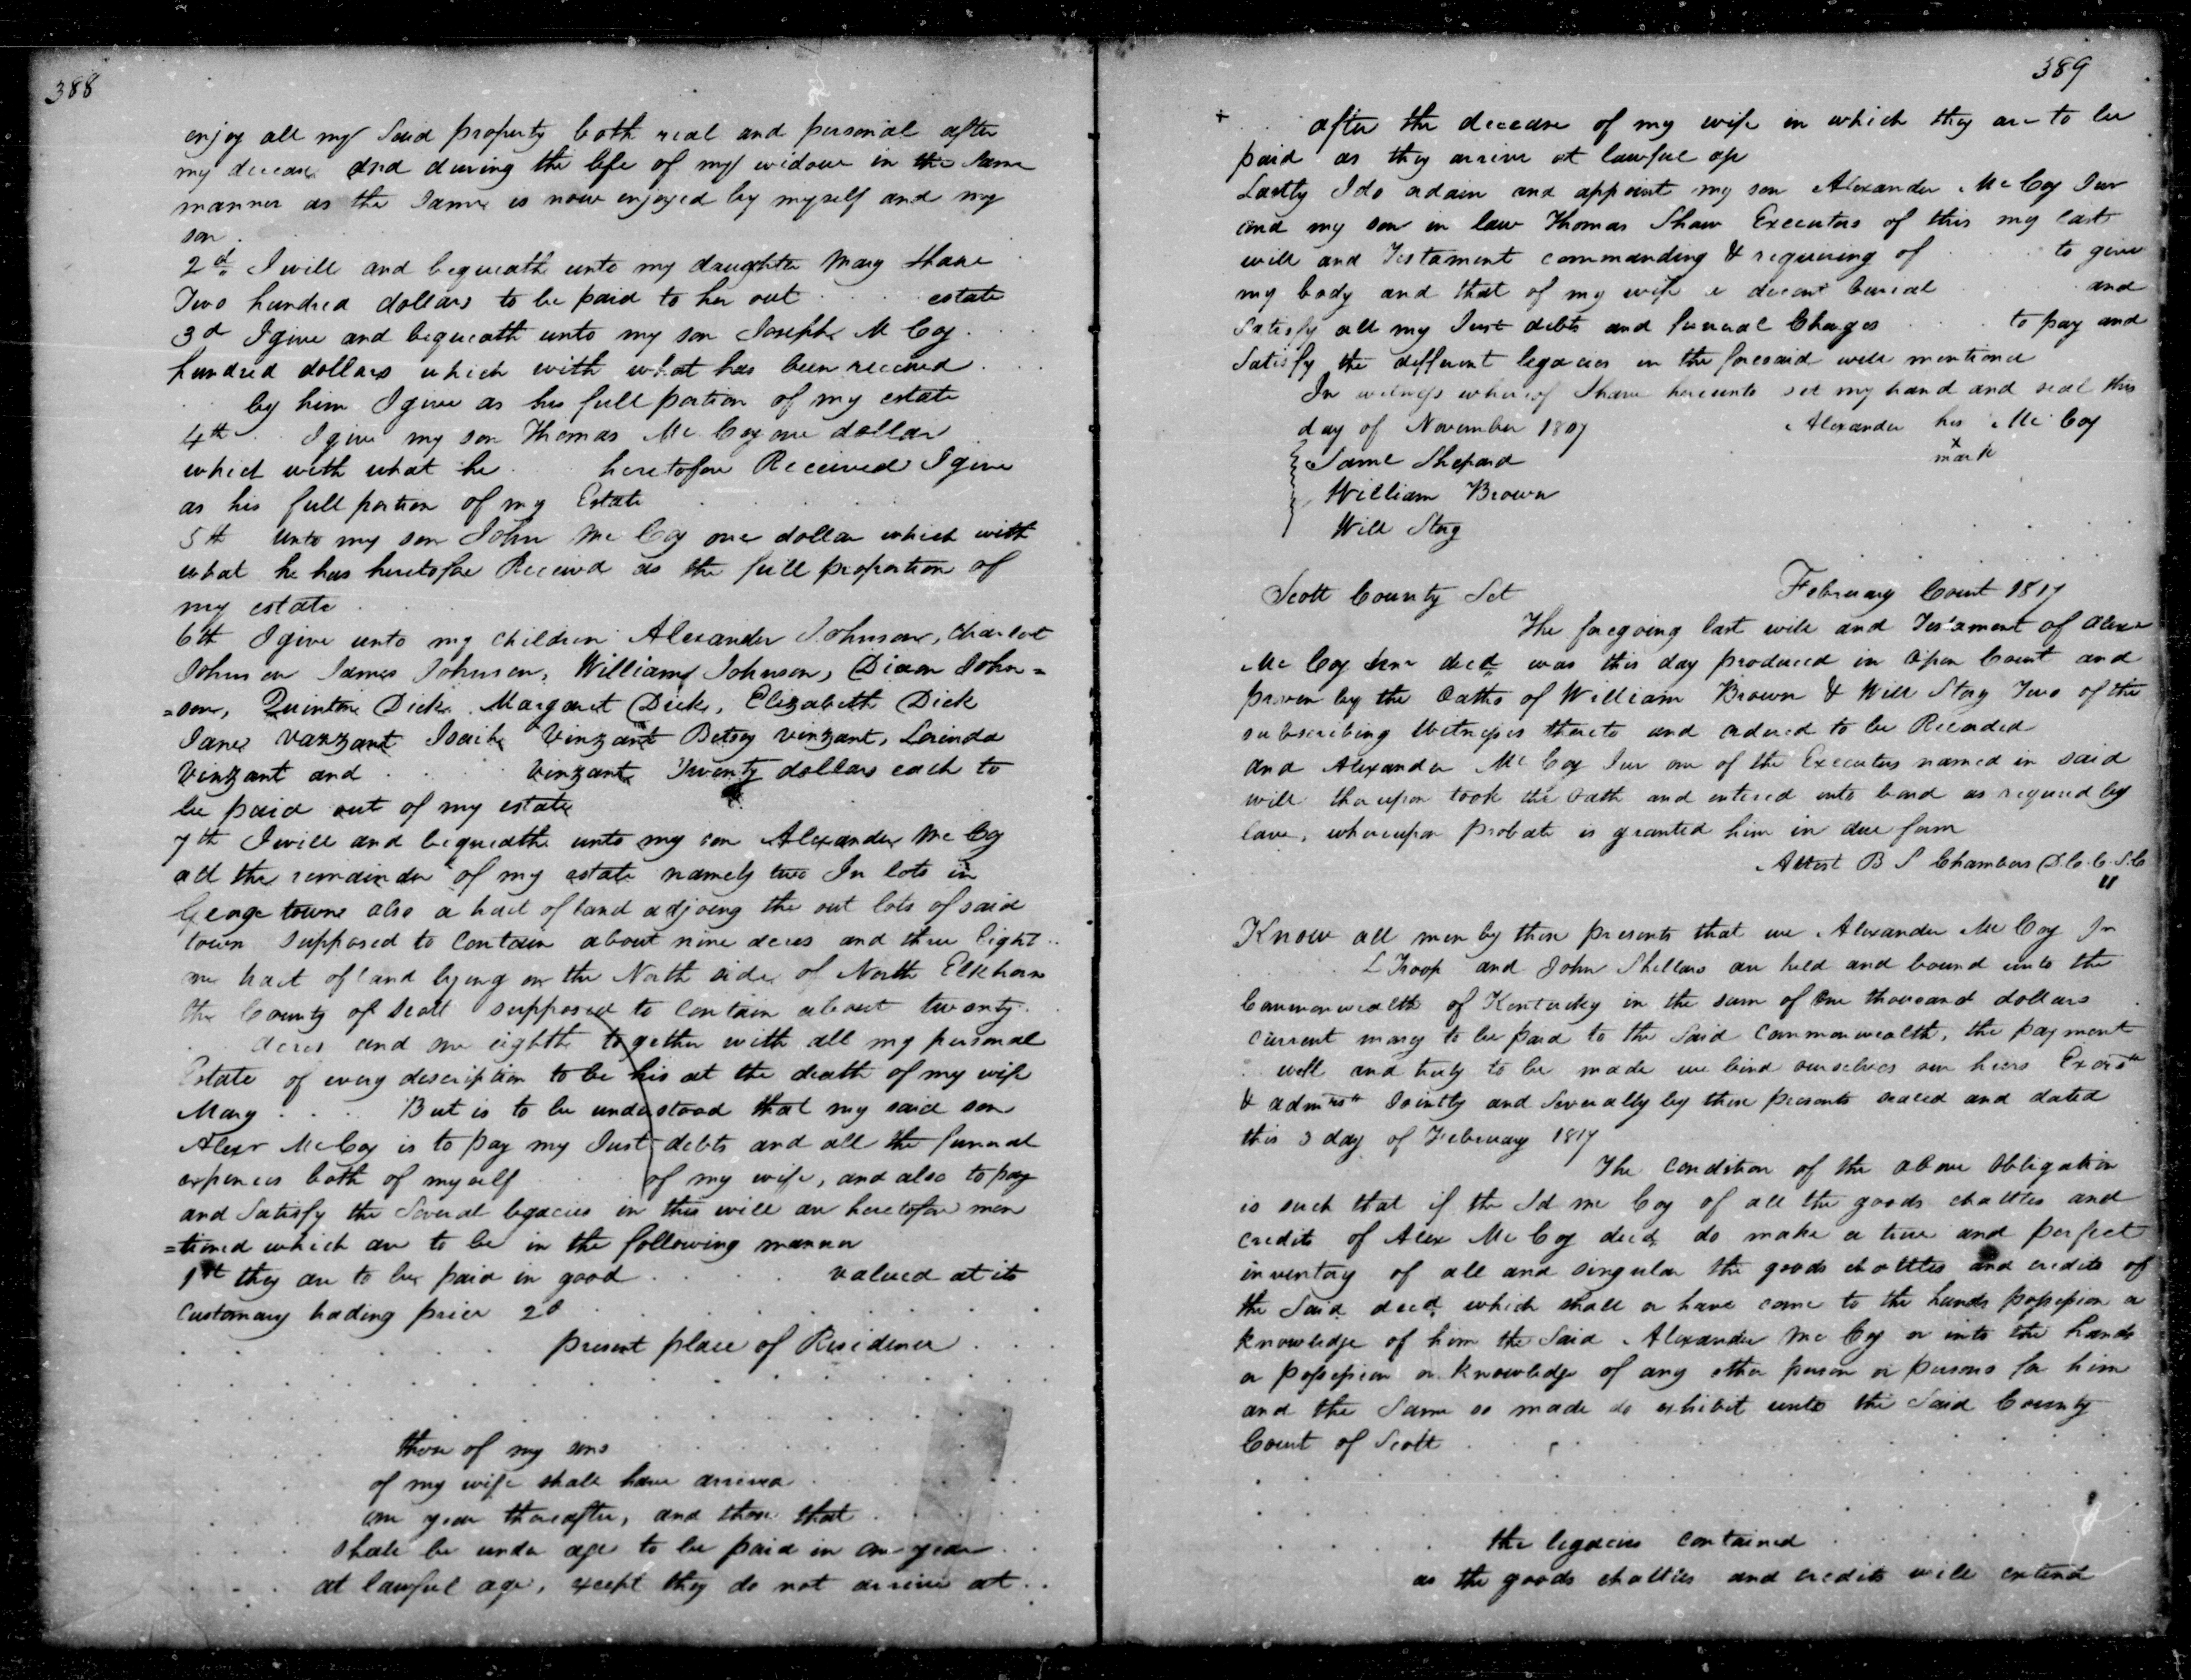 388
enjoy all my said property both real and personal after
my decease and during the life of my widow in the same
manner as the same is now enjoyed by myself and my
son.
2d. I will and bequeath unto my daughter Mary Shaw
Two hundred dollars to be paid to her out . . . . estate
3d I give and bequeath unto my son Joseph McCoy . .
hundred dollars which with what has been received . .
. . by him I give as his full portion of my estate
4th . . I give my son Thomas McCoy one dollar
which with what he . . heretofore Received I give
as his full portion of my Estate
5th unto my son John McCoy one dollar which with
what he has heretofore Received as the full proportion of
my estate
6th I give unto my children Alexander Johnson, Charlot
Johnson James Johnson, William Johnson, Dixon John=
=son, Quinton Dick Margaret Dick, Elizabeth Dick
Jane Vanzant Isaih Vinzant Betsy vinzant, Lorinda
Vinzant and . . . . Vinzant Twenty dollars each to
be paid out of my estate
7th I will and bequeath unto my son Alexander McCoy
all the remainder of my estate namely two In lots in
George town also a tract of land adjoing the out lots of said
town supposed to contain about nine acres and three Eight . .
one tract of land lying on the North side of North Elkhorn
the County of Scott supposed to contain about twenty . .
. . acres and one eighth together with all my personal
Estate of every description to be his at the death of my wife
Mary . . . . But is to be understood that my said son
Alexr McCoy is to pay my Just debts and all the funeral
expences both of myself . . . of my wife, and also to pay
and Satisfy the Several legacies in this will are heretofore men
=tioned which are to be in the following manner
1st they are to be paid in good . . . . . valued at its
customary trading price 2d . . . . . . . .
. . . . . . present place of Residence . . .
those of my sons . . . . .
of my wife shall have arrived . .
one year thereafter, and those that . . .
. . . shall be under age to be paid in one year . .
. . . at lawful age, except they do not arrive at . .
389
+ . . after the decease of my wife in which they are to be
paid as they arrive at lawful age
Lastly I do ordain and appoint my son Alexander McCoy Jur
and my son in law Thomas Shaw Executors of this my last
will and Testament commanding & requiring of . . . to give
my body and that of my wife a decent burial . . . and
Satisfy all my Just debts and funeral Charges . . . to pay and
Satisfy the different legacies in the foresaid will mentioned
In witness whereof I have hereunto set my hand and seal this
day of November 1807 Alexander his McCoy
x
mark
Saml Shepard
William Brown
Will Story
Scott County Sct February Court 1817
The foregoing last will and Testament of Alexr
McCoy Senr decd was this day produced in Open Court and
proven by the Oaths of William Brown & Will Story Two of the
subscribing Witnesses thereto and ordered to be Recorded
and Alexander McCoy Jur one of the Executors named in said
will thereupon took the oath and entered into bond as required by
law, whereupon probate is granted him in due form
Attest B S Chambers D.C.C.S.C
Know all men by these presents that we Alexander McCoy Jr
. . . L Troop and John Shellars are held and bound unto the
Commonwealth of Kentucky in the sum of One thousand dollars
current money to be paid to the Said Commonwealth, the payment
. well and truly to be made we bind ourselves our heirs Exors
& admrs Jointly and Severally by these presents sealed and dated
this 3 day of February 1817
The condition of the above Obligation
is such that if the Sd McCoy of all the goods chattles and
credits of Alex McCoy decd, do make a true and perfect
inventory of all and singular the goods chattles and credits of
the Said decd which shall or have come to the hands possession or
knowledge of him the Said Alexander McCoy or into the hands
or possession or knowledge of any other person or persons for him
and the Same so made do exhibit unto the Said County
Court of Scott . . . . . .
. . . . the legacies contained . . . . .
as the goods chattles and credits will extend